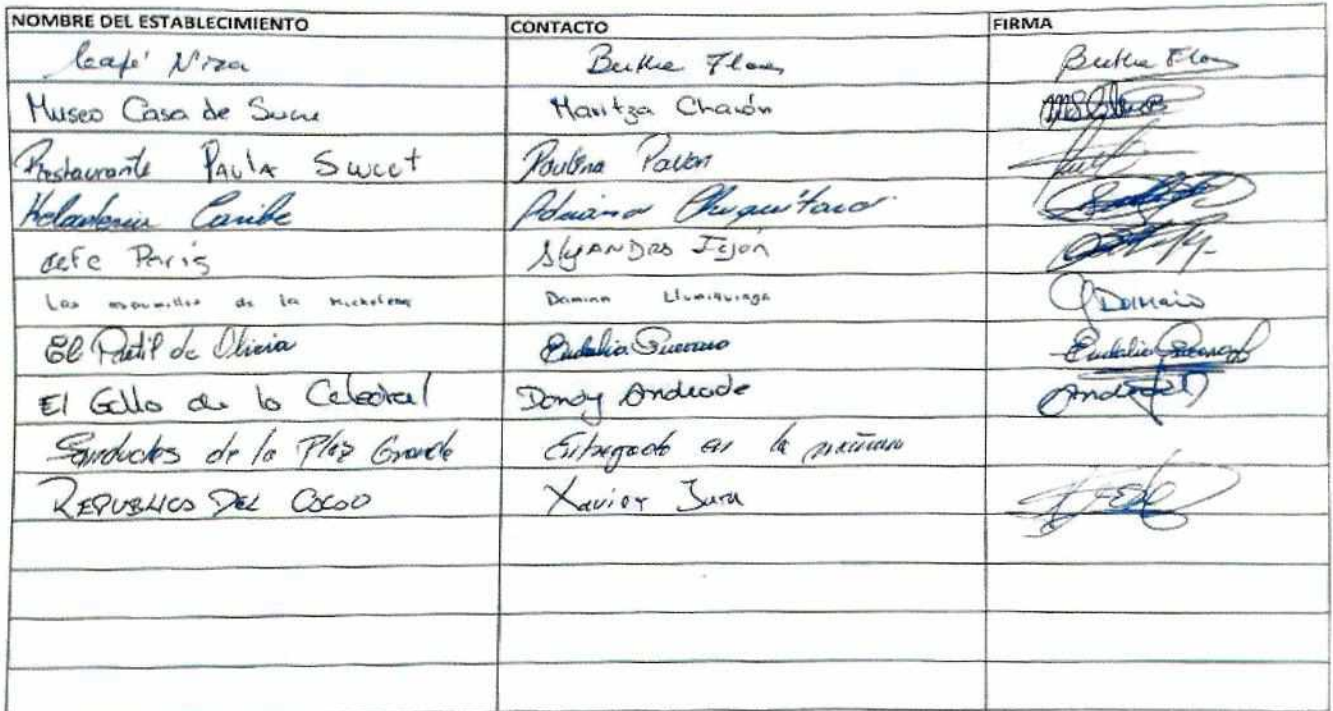 NOMBRE DEL ESTABLECIMIENTO CONTACTO FIRMA
Café Niza Bertha Flores Bertha Flores
Museo Casa de Sucre Maritza Chacón
Restaurante PAULA Sweet Paulina Pavon
Heladeria Caribe Adriana Chiquitarco
cafe Paris AlejANDRO Jijón
Las espumillas de la Michelena Damian Llumiquinga Damian
El Pretil de Olivia Eudalia Guerrero Eudalia Guerrero
El Gallo de la Catedral Dandy Andrade Andrade
Sanduches de la Plaz Grande Entregado en la mañana
REPUBLICA DEL CACAO Xavier Jara